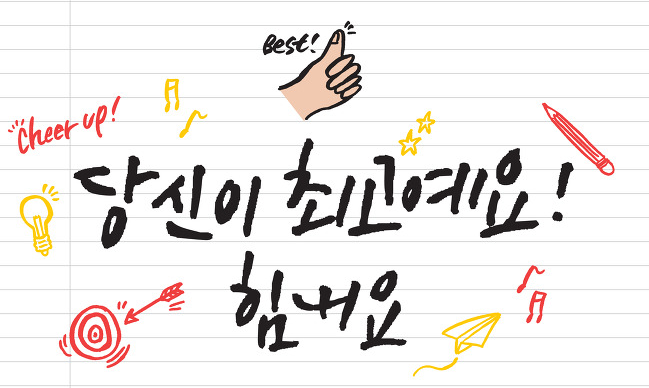 Best!
Cheer up!
당신이 최고예요!
힘내요